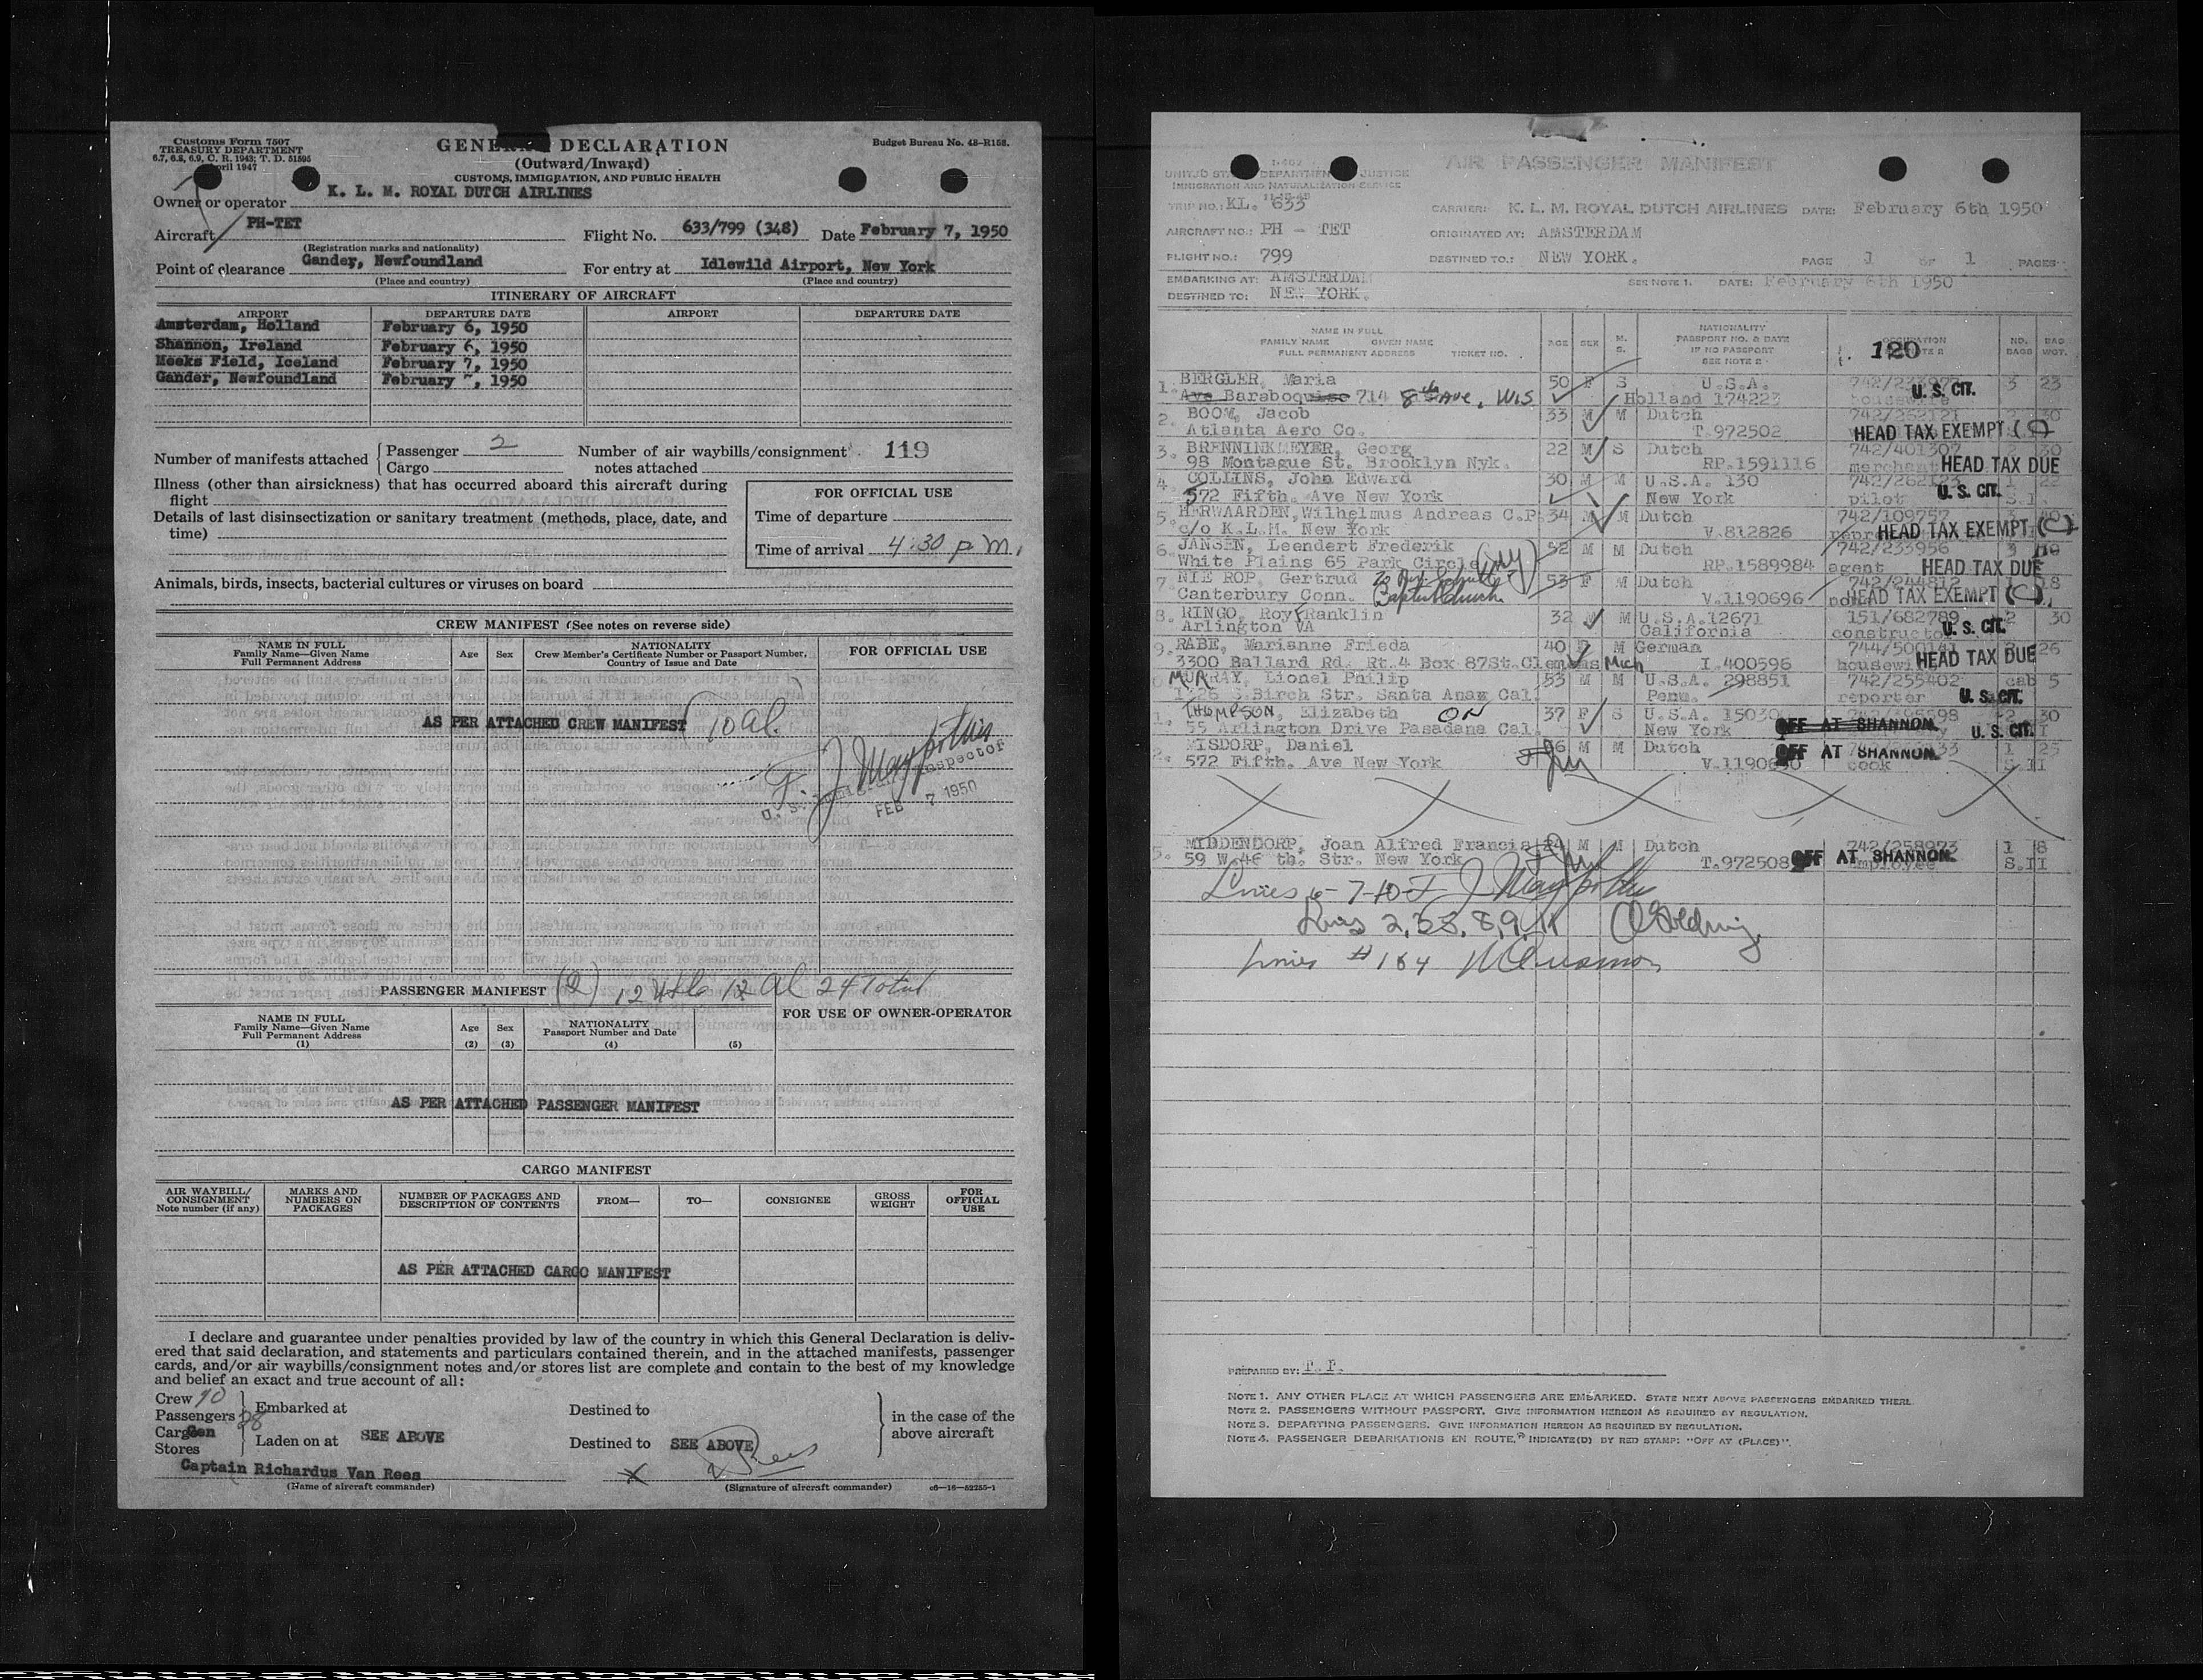 Customs Form 7507
TREASURY DEPARTMENT
6.7, 6.8, 6.9, C. R. 1943; T. D. 51595
April 1947
GENERAL DECLARATION
(Outward/Inward)
CUSTOMS, IMMIGRATION, AND PUBLIC HEALTH
Budget Bureau No. 48-R158.
Owner or operator K. L. M. ROYAL DUTCH AIRLINES
Aircraft PH-TET Flight No. 633/799 (348) Date February 7, 1950
(Registration marks and nationality)
Point of clearance Gander, Newfoundland For entry at Idlewild Airport, New York
(Place and country) (Place and country)
ITINERARY OF AIRCRAFT
AIRPORT DEPARTURE DATE AIRPORT DEPARTURE DATE
Amsterdam, Holland February 6, 1950
Shannon, Ireland February 6, 1950
Meeks Field, Iceland February 7, 1950
Gander, Newfoundland February 7, 1950
Number of manifests attached Passenger 2 Cargo
Number of air waybills/consignment notes attached 119
Illness (other than airsickness) that has occurred aboard this aircraft during
flight
Details of last disinsectization or sanitary treatment (methods, place, date, and
time)
FOR OFFICIAL USE
Time of departure
Time of arrival 4:30 p m.
Animals, birds, insects, bacterial cultures or viruses on board
CREW MANIFEST (See notes on reverse side)
NAME IN FULL
Family Name—Given Name
Full Permanent Address
Age Sex
NATIONALITY
Crew Member's Certificate Number or Passport Number,
Country of Issue and Date
FOR OFFICIAL USE
AS PER ATTACHED CREW MANIFEST 10 al.
FEB 7 1950
PASSENGER MANIFEST (2) 12 al 24 Total
NAME IN FULL
Family Name—Given Name
Full Permanent Address
(1)
Age
(2)
Sex
(3)
NATIONALITY
Passport Number and Date
(4) (5)
FOR USE OF OWNER-OPERATOR
AS PER ATTACHED PASSENGER MANIFEST
CARGO MANIFEST
AIR WAYBILL/
CONSIGNMENT
Note number (if any)
MARKS AND
NUMBERS ON
PACKAGES
NUMBER OF PACKAGES AND
DESCRIPTION OF CONTENTS
FROM— TO— CONSIGNEE
GROSS
WEIGHT
FOR
OFFICIAL
USE
AS PER ATTACHED CARGO MANIFEST
I declare and guarantee under penalties provided by law of the country in which this General Declaration is deliv-
ered that said declaration, and statements and particulars contained therein, and in the attached manifests, passenger
cards, and/or air waybills/consignment notes and/or stores list are complete and contain to the best of my knowledge
and belief an exact and true account of all:
Crew 10
Passengers 28
Cargo
Stores
Embarked at Destined to
Laden on at SEE ABOVE Destined to SEE ABOVE
in the case of the
above aircraft
Captain Richardus Van Rees
(Name of aircraft commander) (Signature of aircraft commander) c6—16—52255-1
AIR PASSENGER MANIFEST
IMMIGRATION AND NATURALIZATION SERVICE
TRIP NO.: KL. 633 CARRIER: K. L. M. ROYAL DUTCH AIRLINES DATE: February 6th 1950
AIRCRAFT NO.: PH - TET ORIGINATED AT: AMSTERDAM
FLIGHT NO.: 799 DESTINED TO.: NEW YORK. PAGE 1 OF 1 PAGES
EMBARKING AT: AMSTERDAM SEE NOTE 1. DATE: February 6th 1950
DESTINED TO: NEW YORK.
NAME IN FULL
FAMILY NAME GIVEN NAME
FULL PERMANENT ADDRESS TICKET NO.
AGE SEX M. S.
NATIONALITY
PASSPORT NO. & DATE
IF NO PASSPORT
SEE NOTE 2
120
NO. BAGS BAG WGT.
1. BERGLER, Maria 50 F S U.S.A. 3 23
714 8th Ave, Wis Holland 174223 U. S. CIT.
2. BOOM, Jacob 33 M M Dutch 742/262121 30
Atlanta Aero Co. T.972502 HEAD TAX EXEMPT (C)
3. BRENNINKMEYER, Georg 22 M S Dutch 742/401307 30
98 Montague St. Brooklyn Nyk. RP.1591116 merchant HEAD TAX DUE
4. COLLINS, John Edward 30 M M U.S.A. 130 742/262123 1 22
572 Fifth. Ave New York New York pilot U. S. CIT.
5. HERWAARDEN, Wilhelmus Andreas C.P. 34 M M Dutch 742/109757
c/o K.L.M. New York V.812826 HEAD TAX EXEMPT (C)
6. JANSEN, Leendert Frederik 52 M M Dutch 742/233956 3
White Plains 65 Park Circle (NY) RP.1589984 agent HEAD TAX DUE
7. NIE ROP, Gertrud 53 F M Dutch 742/244812 1 18
Canterbury Conn. Baptist Church V.1190696 HEAD TAX EXEMPT (C)
8. RINGO, Roy Franklin 32 M U.S.A. 12671 151/682789 2 30
Arlington VA California U. S. CIT.
9. RABE, Marianne Frieda 40 F M German 26
3300 Ballard Rd. Rt.4 Box 87 St. Clemens Mich I.400596 HEAD TAX DUE
MURRAY, Lionel Philip 53 M M U.S.A. 298851 742/255402 cab 5
S.Birch Str. Santa Anaw Cal. Penn. reporter U. S. CIT.
THOMPSON, Elizabeth ON 37 F S U.S.A. 2 30
55 Arlington Drive Pasadena Cal. New York OFF AT SHANNON U. S. CIT.
MISDORP, Daniel M M Dutch 1 25
572 Fifth. Ave New York OFF AT SHANNON cook S.II
MIDDENDORP, Joan Alfred Francis M M Dutch 742/258973 1 8
59 W.46 th. Str. New York T.972508 OFF AT SHANNON employee S.II
Lines 6-7-10
Lines 2,3,5,8,9,11
Lines # 1&4
PREPARED BY:
NOTE 1. ANY OTHER PLACE AT WHICH PASSENGERS ARE EMBARKED. STATE NEXT ABOVE PASSENGERS EMBARKED THERE.
NOTE 2. PASSENGERS WITHOUT PASSPORT. GIVE INFORMATION HEREON AS REQUIRED BY REGULATION.
NOTE 3. DEPARTING PASSENGERS. GIVE INFORMATION HEREON AS REQUIRED BY REGULATION.
NOTE 4. PASSENGER DEBARKATIONS EN ROUTE, INDICATE(D) BY RED STAMP: "OFF AT (PLACE)".